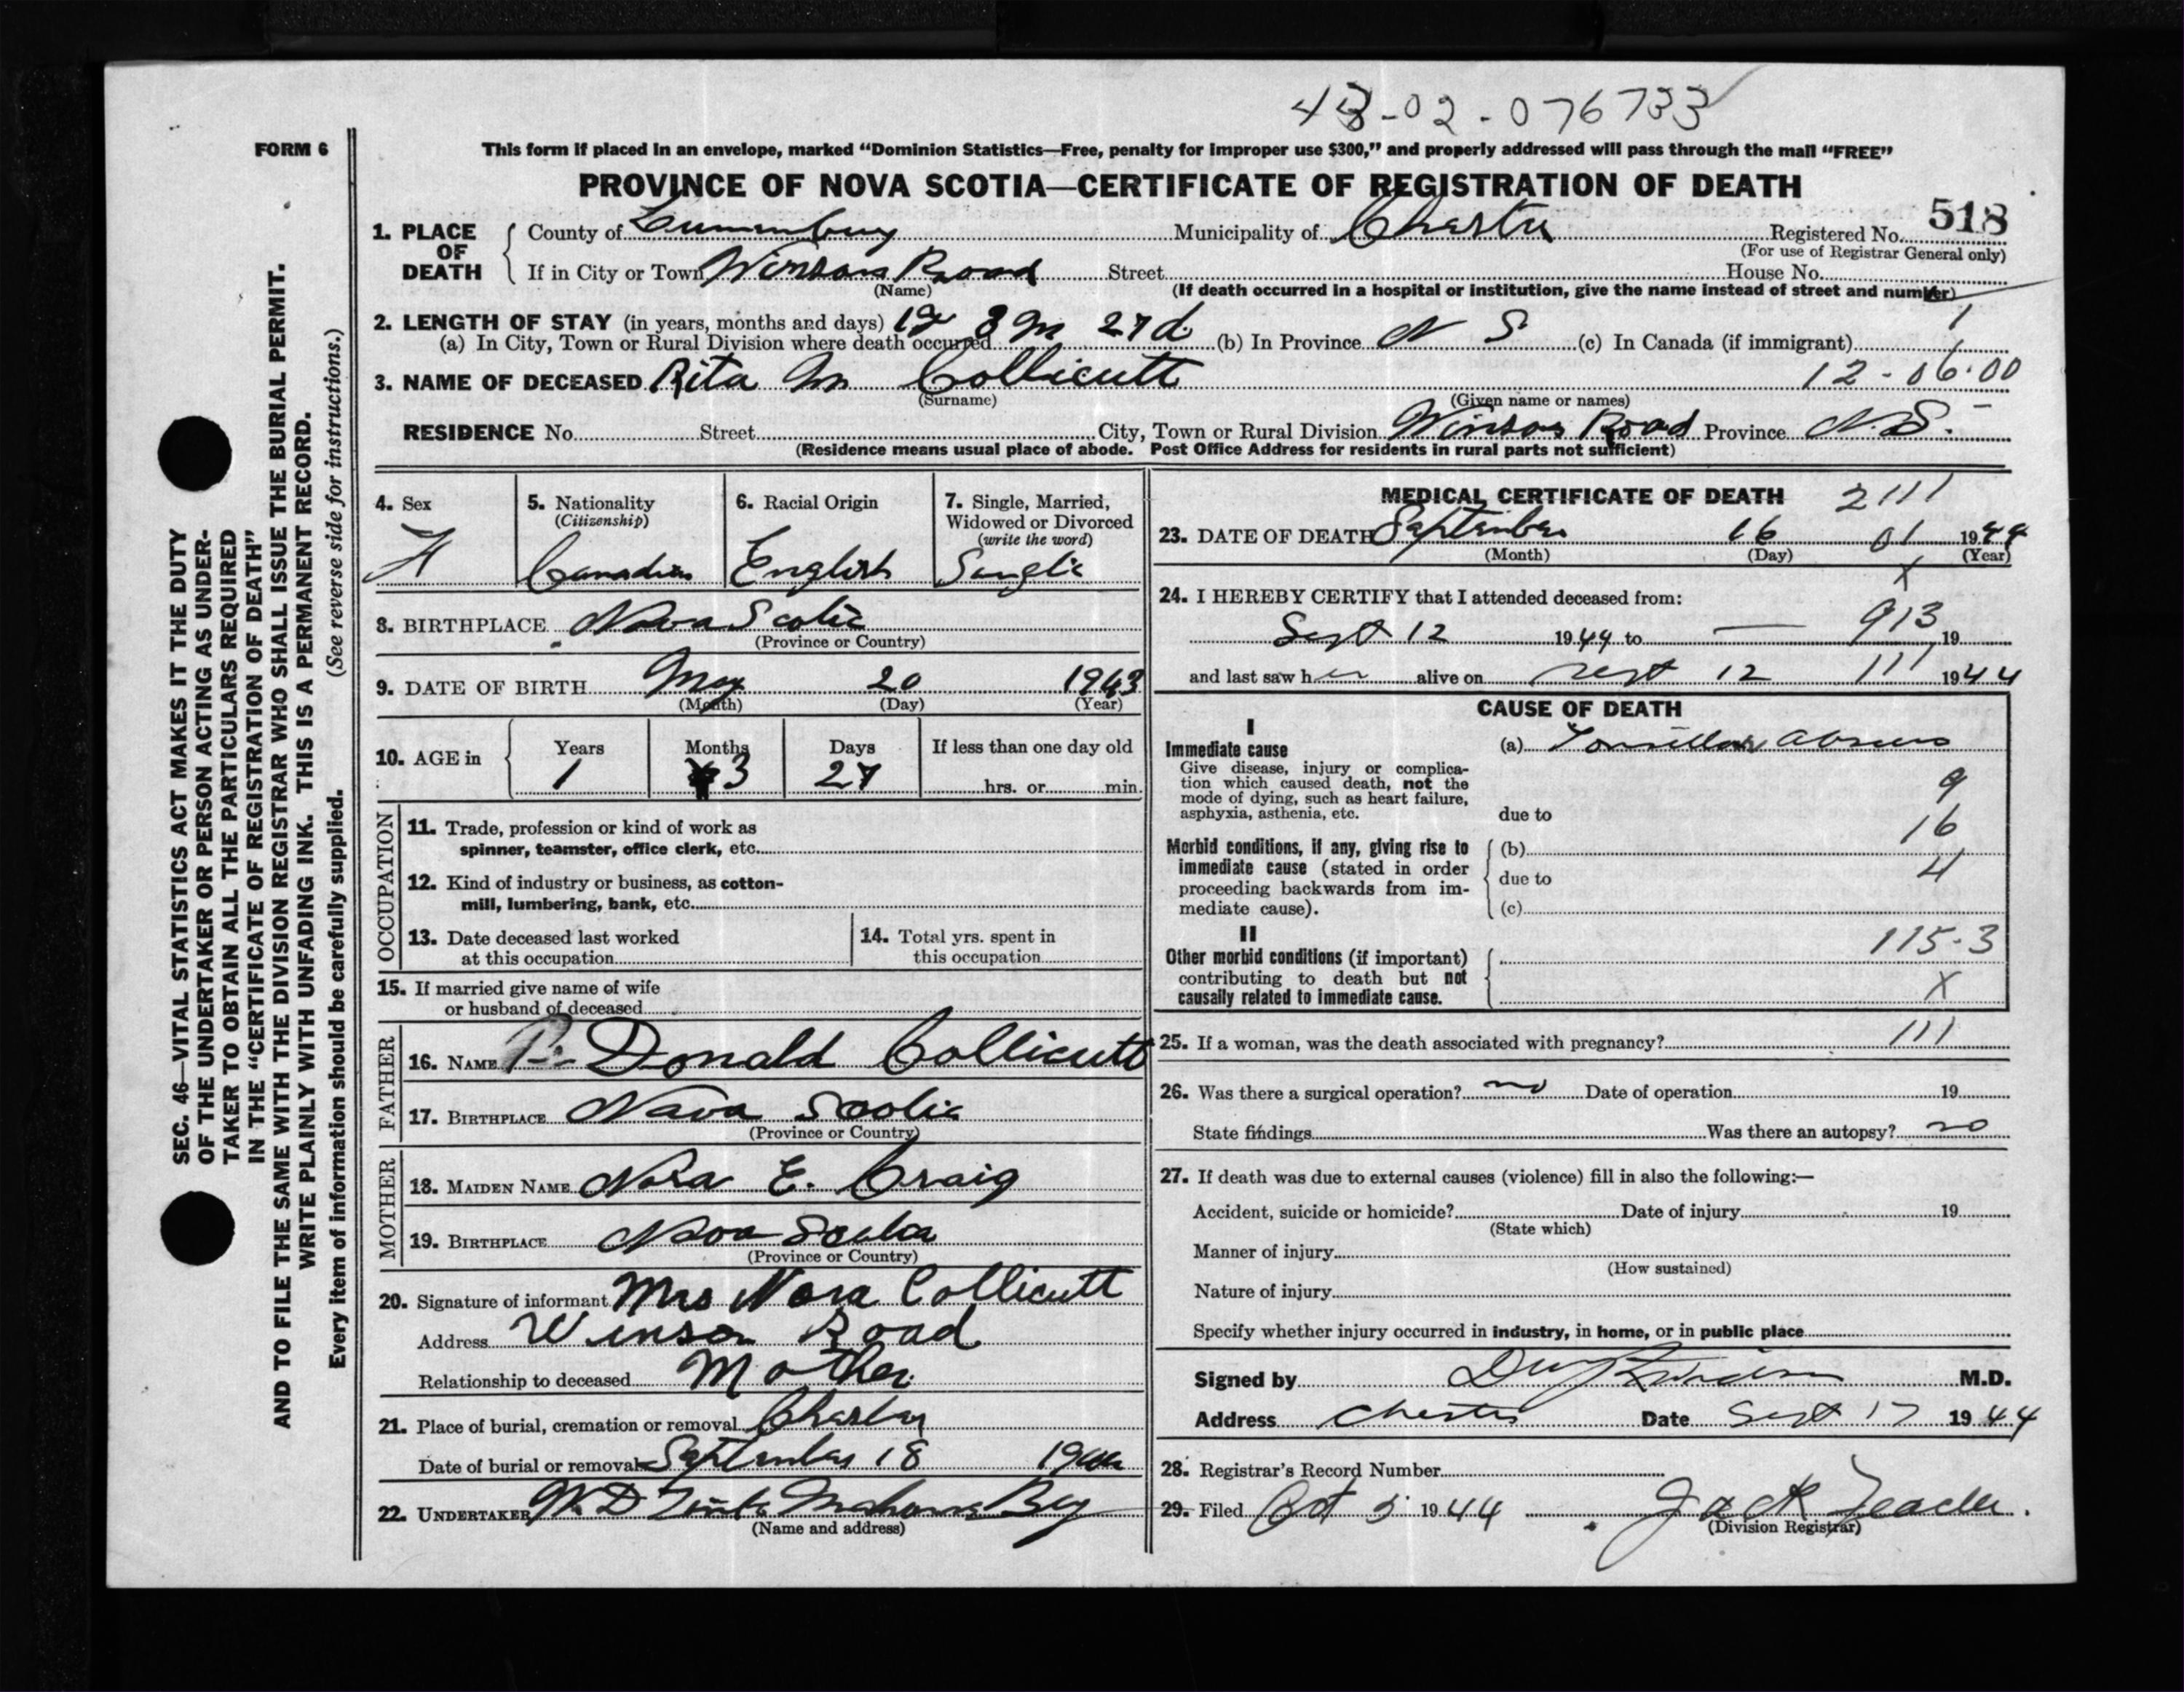 43-02-076733
FORM 6
This form if placed in an envelope, marked “Dominion Statistics—Free, penalty for improper use $300,” and properly addressed will pass through the mail “FREE”
PROVINCE OF NOVA SCOTIA—CERTIFICATE OF REGISTRATION OF DEATH
1. PLACE OF DEATH County of Lunenburg Municipality of Chester Registered No. 518
(For use of Registrar General only)
If in City or Town Winsor Road Street House No.
(Name) (If death occurred in a hospital or institution, give the name instead of street and number)
2. LENGTH OF STAY (in years, months and days) 1y 3 m 27 d
(a) In City, Town or Rural Division where death occurred (b) In Province N S (c) In Canada (if immigrant)
3. NAME OF DECEASED Rita M Collicutt 12-06.00
(Surname) (Given name or names)
RESIDENCE No. Street City, Town or Rural Division Winsor Road Province N.S.
(Residence means usual place of abode. Post Office Address for residents in rural parts not sufficient)
4. Sex F
5. Nationality (Citizenship) Canadian
6. Racial Origin English
7. Single, Married, Widowed or Divorced (write the word) Single
8. BIRTHPLACE Nova Scotia
(Province or Country)
9. DATE OF BIRTH May 20 1943
(Month) (Day) (Year)
10. AGE in Years 1 Months 3 Days 27 If less than one day old
hrs. or min.
OCCUPATION
11. Trade, profession or kind of work as
spinner, teamster, office clerk, etc.
12. Kind of industry or business, as cotton-
mill, lumbering, bank, etc.
13. Date deceased last worked
at this occupation
14. Total yrs. spent in
this occupation
15. If married give name of wife
or husband of deceased
FATHER
16. NAME Donald Collicutt
17. BIRTHPLACE Nova Scotia
(Province or Country)
MOTHER
18. MAIDEN NAME Nora E. Craig
19. BIRTHPLACE Nova Scotia
(Province or Country)
20. Signature of informant Mrs Nora Collicutt
Address Winsor Road
Relationship to deceased Mother
21. Place of burial, cremation or removal Chester
Date of burial or removal September 18 1944
22. UNDERTAKER Mahone Bay
(Name and address)
MEDICAL CERTIFICATE OF DEATH 2111
23. DATE OF DEATH September 16 01 1944
(Month) (Day) (Year)
X
24. I HEREBY CERTIFY that I attended deceased from:
Sept 12 1944 to — 913 19
and last saw her alive on Sept 12 111 1944
CAUSE OF DEATH
I
Immediate cause (a) Tonsillar abscess
Give disease, injury or complica-
tion which caused death, not the
mode of dying, such as heart failure,
asphyxia, asthenia, etc.
9
due to
16
Morbid conditions, if any, giving rise to
immediate cause (stated in order
proceeding backwards from im-
mediate cause).
(b)
4
due to
(c)
II
115-3
Other morbid conditions (if important)
contributing to death but not
causally related to immediate cause.
X
25. If a woman, was the death associated with pregnancy? 111
26. Was there a surgical operation? no Date of operation 19
State findings Was there an autopsy? no
27. If death was due to external causes (violence) fill in also the following:—
Accident, suicide or homicide? Date of injury 19
(State which)
Manner of injury
(How sustained)
Nature of injury
Specify whether injury occurred in industry, in home, or in public place
Signed by M.D.
Address Chester Date Sept 17 1944
28. Registrar's Record Number
29. Filed Oct 5 1944 Jack
(Division Registrar)
SEC. 46—VITAL STATISTICS ACT MAKES IT THE DUTY
OF THE UNDERTAKER OR PERSON ACTING AS UNDER-
TAKER TO OBTAIN ALL THE PARTICULARS REQUIRED
IN THE “CERTIFICATE OF REGISTRATION OF DEATH”
AND TO FILE THE SAME WITH THE DIVISION REGISTRAR WHO SHALL ISSUE THE BURIAL PERMIT.
WRITE PLAINLY WITH UNFADING INK. THIS IS A PERMANENT RECORD.
Every item of information should be carefully supplied. (See reverse side for instructions.)